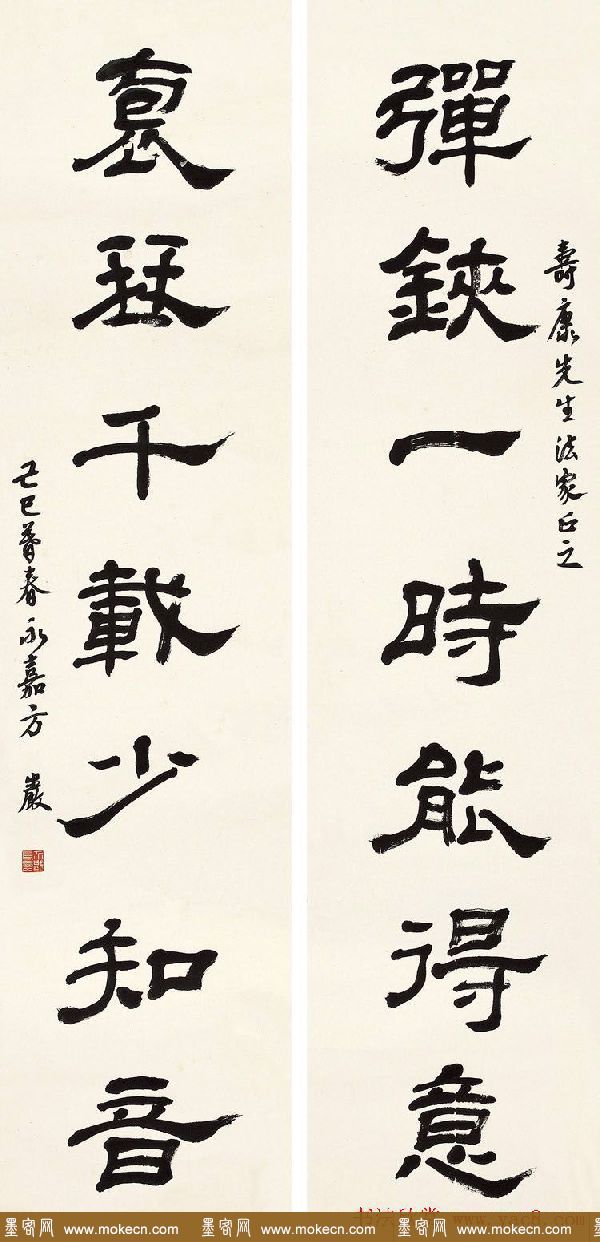 壽康先生法家正之
彈鋏一時能得意
袌珡千載少知音
己巳暮春永嘉方巖
www.yac8.com
墨客网 www.mokecn.com 墨客网 www.mokecn.com 墨客网 www.mokecn.com